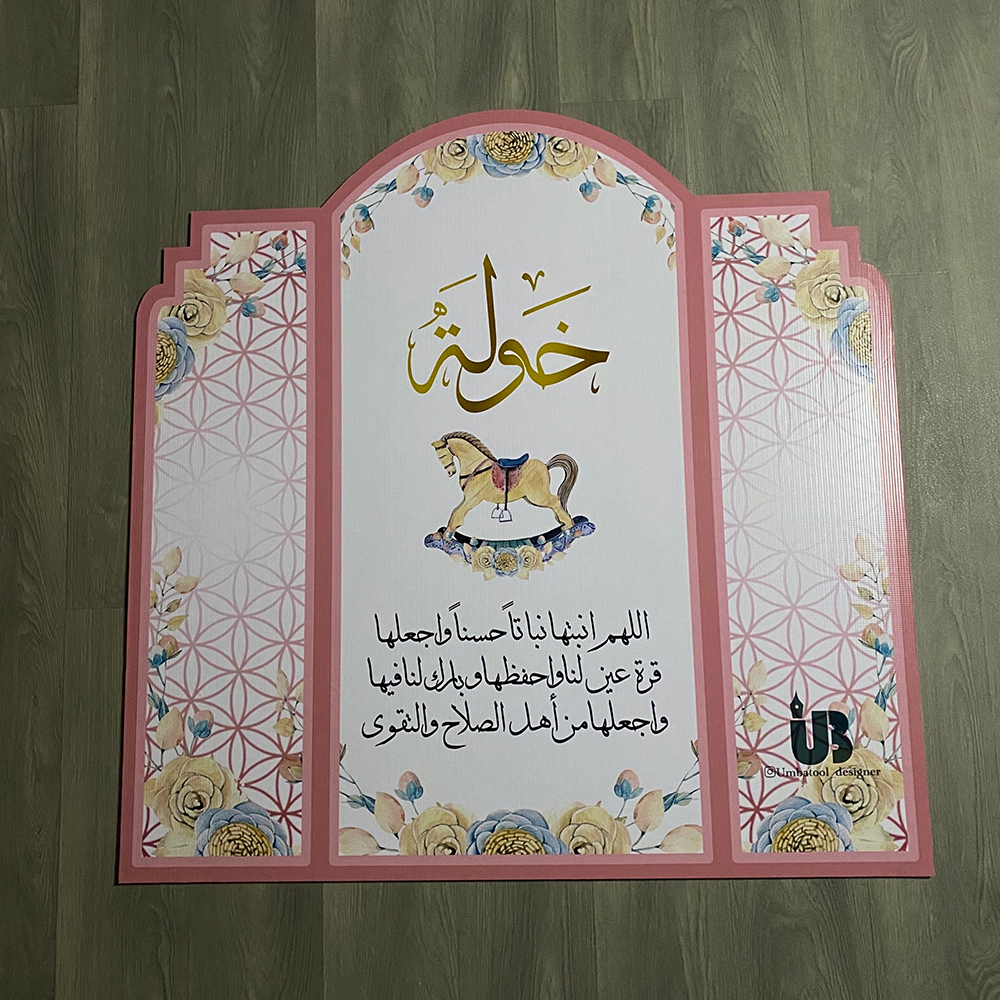 خَولَةُ
اللهم انبتها نباتاً حسناً واجعلها
قرة عين لنا واحفظها وبارك لنا فيها
واجعلها من أهل الصلاح والتقوى
UB
@Umbatool_designer